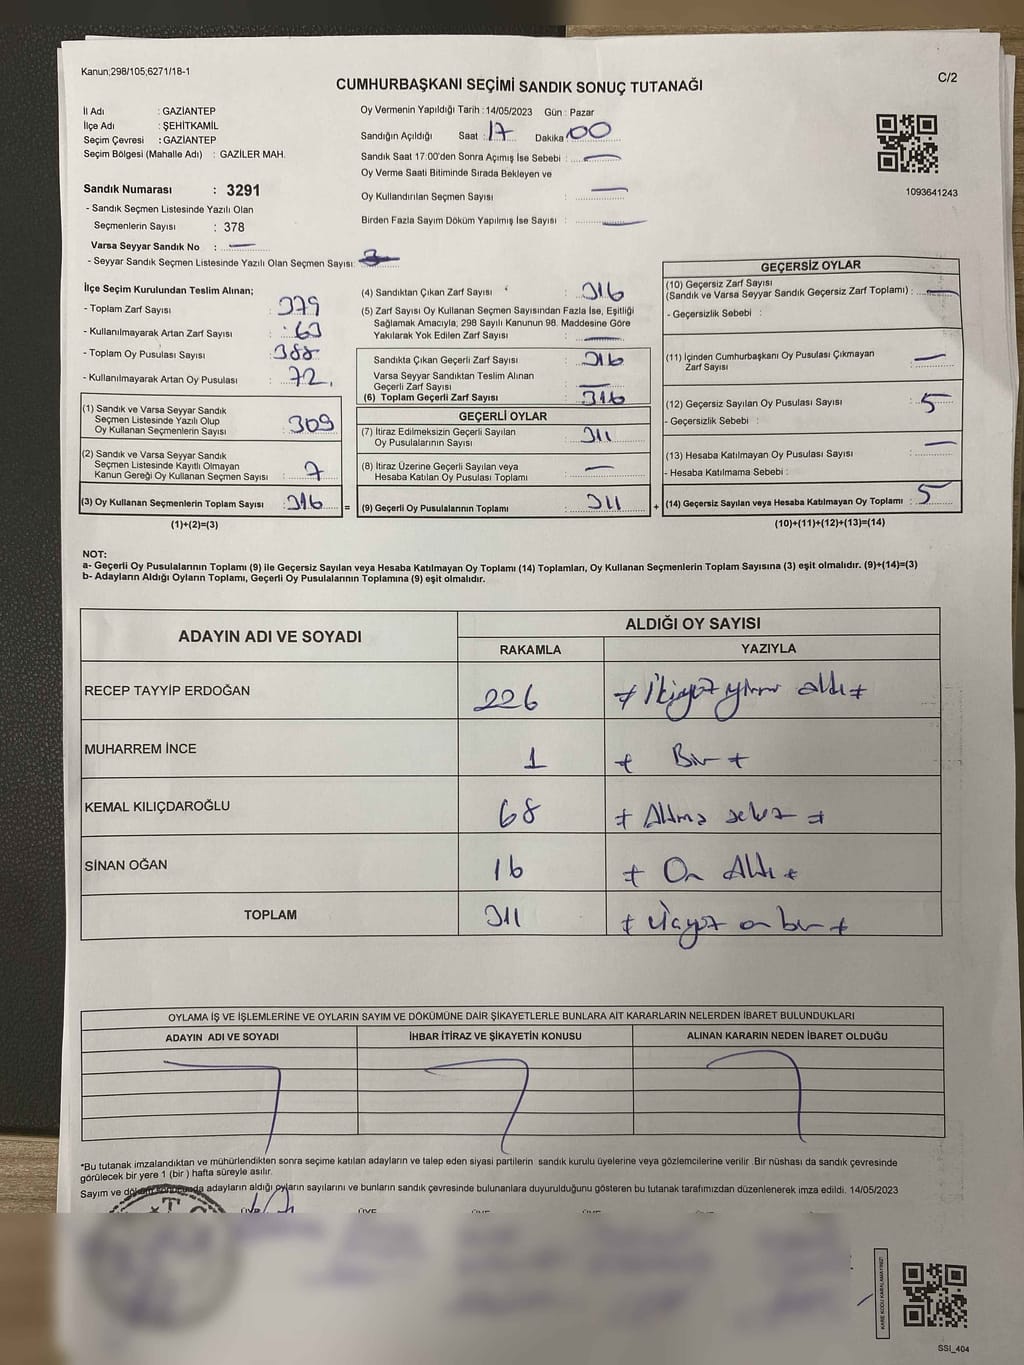 Kanun;298/105;6271/18-1
C/2
CUMHURBAŞKANI SEÇİMİ SANDIK SONUÇ TUTANAĞI
İl Adı : GAZİANTEP
İlçe Adı : ŞEHİTKAMİL
Seçim Çevresi : GAZİANTEP
Seçim Bölgesi (Mahalle Adı) : GAZİLER MAH.
Oy Vermenin Yapıldığı Tarih : 14/05/2023 Gün : Pazar
Sandığın Açıldığı Saat : 17 Dakika : 00
Sandık Saat 17:00'den Sonra Açımış İse Sebebi :
Oy Verme Saati Bitiminde Sırada Bekleyen ve
Oy Kullandırılan Seçmen Sayısı :
Birden Fazla Sayım Döküm Yapılmış İse Sayısı :
1093641243
Sandık Numarası : 3291
- Sandık Seçmen Listesinde Yazılı Olan
Seçmenlerin Sayısı : 378
Varsa Seyyar Sandık No :
- Seyyar Sandık Seçmen Listesinde Yazılı Olan Seçmen Sayısı:
İlçe Seçim Kurulundan Teslim Alınan;
- Toplam Zarf Sayısı : 379
- Kullanılmayarak Artan Zarf Sayısı : 63
- Toplam Oy Pusulası Sayısı : 388
- Kullanılmayarak Artan Oy Pusulası : 72
(1) Sandık ve Varsa Seyyar Sandık
Seçmen Listesinde Yazılı Olup
Oy Kullanan Seçmenlerin Sayısı : 309
(2) Sandık ve Varsa Seyyar Sandık
Seçmen Listesinde Kayıtlı Olmayan
Kanun Gereği Oy Kullanan Seçmen Sayısı : 7
(3) Oy Kullanan Seçmenlerin Toplam Sayısı : 316 =
(1)+(2)=(3)
(4) Sandıktan Çıkan Zarf Sayısı : 316
(5) Zarf Sayısı Oy Kullanan Seçmen Sayısından Fazla İse, Eşitliği
Sağlamak Amacıyla; 298 Sayılı Kanunun 98. Maddesine Göre
Yakılarak Yok Edilen Zarf Sayısı :
Sandıkta Çıkan Geçerli Zarf Sayısı : 316
Varsa Seyyar Sandıktan Teslim Alınan
Geçerli Zarf Sayısı :
(6) Toplam Geçerli Zarf Sayısı : 316
GEÇERLİ OYLAR
(7) İtiraz Edilmeksizin Geçerli Sayılan
Oy Pusulalarının Sayısı : 311
(8) İtiraz Üzerine Geçerli Sayılan veya
Hesaba Katılan Oy Pusulası Toplamı :
(9) Geçerli Oy Pusulalarının Toplamı : 311 +
GEÇERSİZ OYLAR
(10) Geçersiz Zarf Sayısı
(Sandık ve Varsa Seyyar Sandık Geçersiz Zarf Toplamı) :
- Geçersizlik Sebebi :
(11) İçinden Cumhurbaşkanı Oy Pusulası Çıkmayan
Zarf Sayısı :
(12) Geçersiz Sayılan Oy Pusulası Sayısı : 5
- Geçersizlik Sebebi :
(13) Hesaba Katılmayan Oy Pusulası Sayısı :
- Hesaba Katılmama Sebebi :
(14) Geçersiz Sayılan veya Hesaba Katılmayan Oy Toplamı : 5
(10)+(11)+(12)+(13)=(14)
NOT:
a- Geçerli Oy Pusulalarının Toplamı (9) ile Geçersiz Sayılan veya Hesaba Katılmayan Oy Toplamı (14) Toplamları, Oy Kullanan Seçmenlerin Toplam Sayısına (3) eşit olmalıdır. (9)+(14)=(3)
b- Adayların Aldığı Oyların Toplamı, Geçerli Oy Pusulalarının Toplamına (9) eşit olmalıdır.
ADAYIN ADI VE SOYADI
ALDIĞI OY SAYISI
RAKAMLA YAZIYLA
RECEP TAYYİP ERDOĞAN 226 İkiyüz yirmi altı
MUHARREM İNCE 1 Bir
KEMAL KILIÇDAROĞLU 68 Altmış sekiz
SİNAN OĞAN 16 On Altı
TOPLAM 311 Üçyüz on bir
OYLAMA İŞ VE İŞLEMLERİNE VE OYLARIN SAYIM VE DÖKÜMÜNE DAİR ŞİKAYETLERLE BUNLARA AİT KARARLARIN NELERDEN İBARET BULUNDUKLARI
ADAYIN ADI VE SOYADI İHBAR İTİRAZ VE ŞİKAYETİN KONUSU ALINAN KARARIN NEDEN İBARET OLDUĞU
*Bu tutanak imzalandıktan ve mühürlendikten sonra seçime katılan adayların ve talep eden siyasi partilerin sandık kurulu üyelerine veya gözlemcilerine verilir Bir nüshası da sandık çevresinde
görülecek bir yere 1 (bir ) hafta süreyle asılır.
Sayım ve döküm sonucunda adayların aldığı oyların sayılarını ve bunların sandık çevresinde bulunanlara duyurulduğunu gösteren bu tutanak tarafımızdan düzenlenerek imza edildi. 14/05/2023
ÜYE ÜYE ÜYE ÜYE
KARE KODU KARALAMAYINIZ!
SSI_404